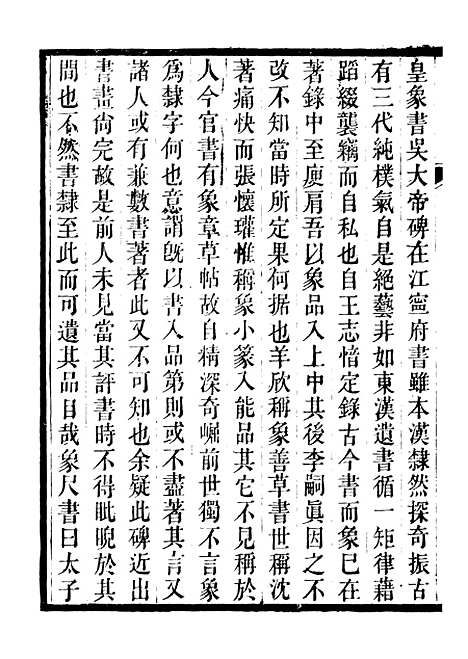 皇象書吳大帝碑在江寧府書雖本漢隸然探奇振古
有三代純樸氣自是絕藝非如東漢遺書循一矩律藉
蹈綴襲竊而自私也自王志愔定錄古今書而象已在
著錄中至廋肩吾以象品入上中其後李嗣眞因之不
改不知當時所定果何据也羊欣稱象善草書世稱沈
著痛快而張懷瓘惟稱象小篆入能品其它不見稱於
人今官書有象章草帖故自精深奇崛前世獨不言象
爲隸字何也意謂旣以書入品第則或不盡著其言又
諸人或有兼數書著者此又不可知也余疑此碑近出
書畫尙完故是前人未見當其評書時不得眦睨於其
間也不然書隸至此而可遺其品目哉象尺書曰太子